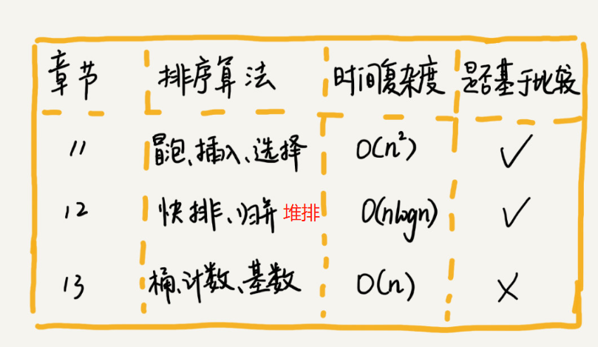 章节 排序算法 时间复杂度 是否基于比较
11 冒泡、插入、选择 O(n²) ✓
12 快排、归并 堆排 O(nlogn) ✓
13 桶、计数、基数 O(n) ×